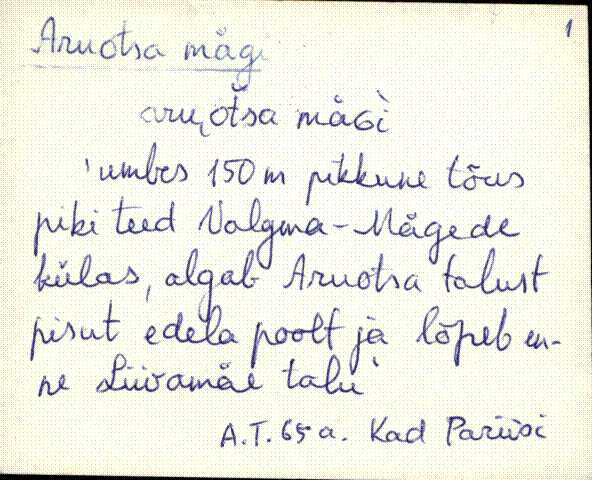 1
Aruotsa mägi
aru͔oťsa mäGì
'umbes 150 m pikkune tõus
piki teed Valgma-Mägede
külas, algab Aruotsa talust
pisut edela poolt ja lõpeb en-
ne Liivamäe talu'
A.T. 65 a. Kad Pariisi